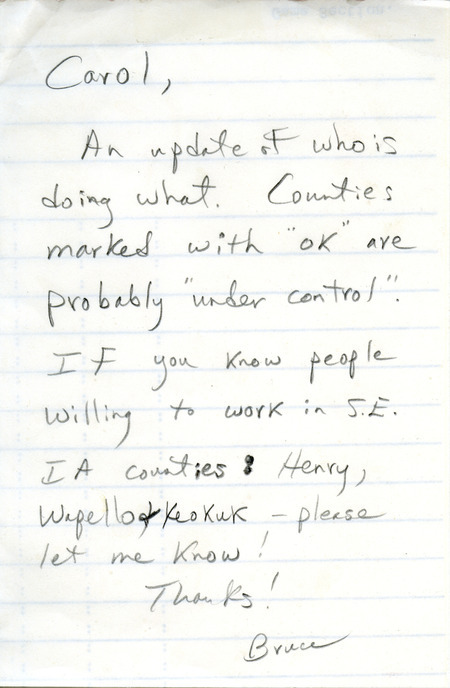 Carol,
An update of who is
doing what. Counties
marked with "OK" are
probably "under control".
If you know people
willing to work in S.E.
IA counties: Henry,
Wapello & Keokuk - please
let me know!
Thanks!
Bruce